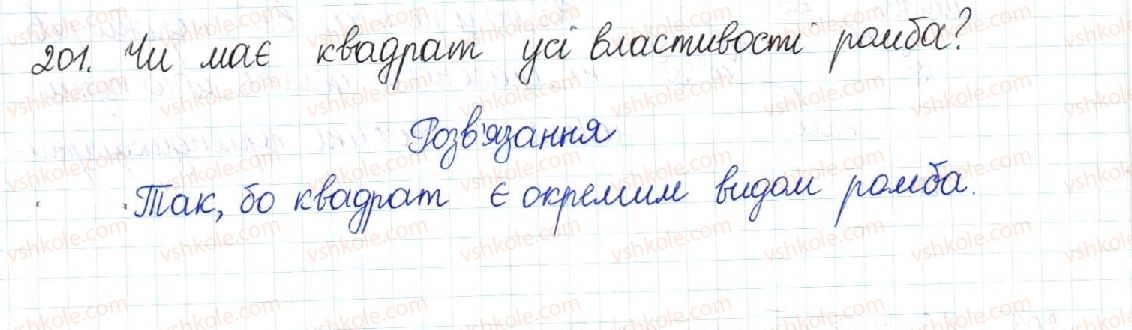 201. Чи має квадрат усі властивості ромба?
Розв'язання
Так, бо квадрат є окремим видом ромба.